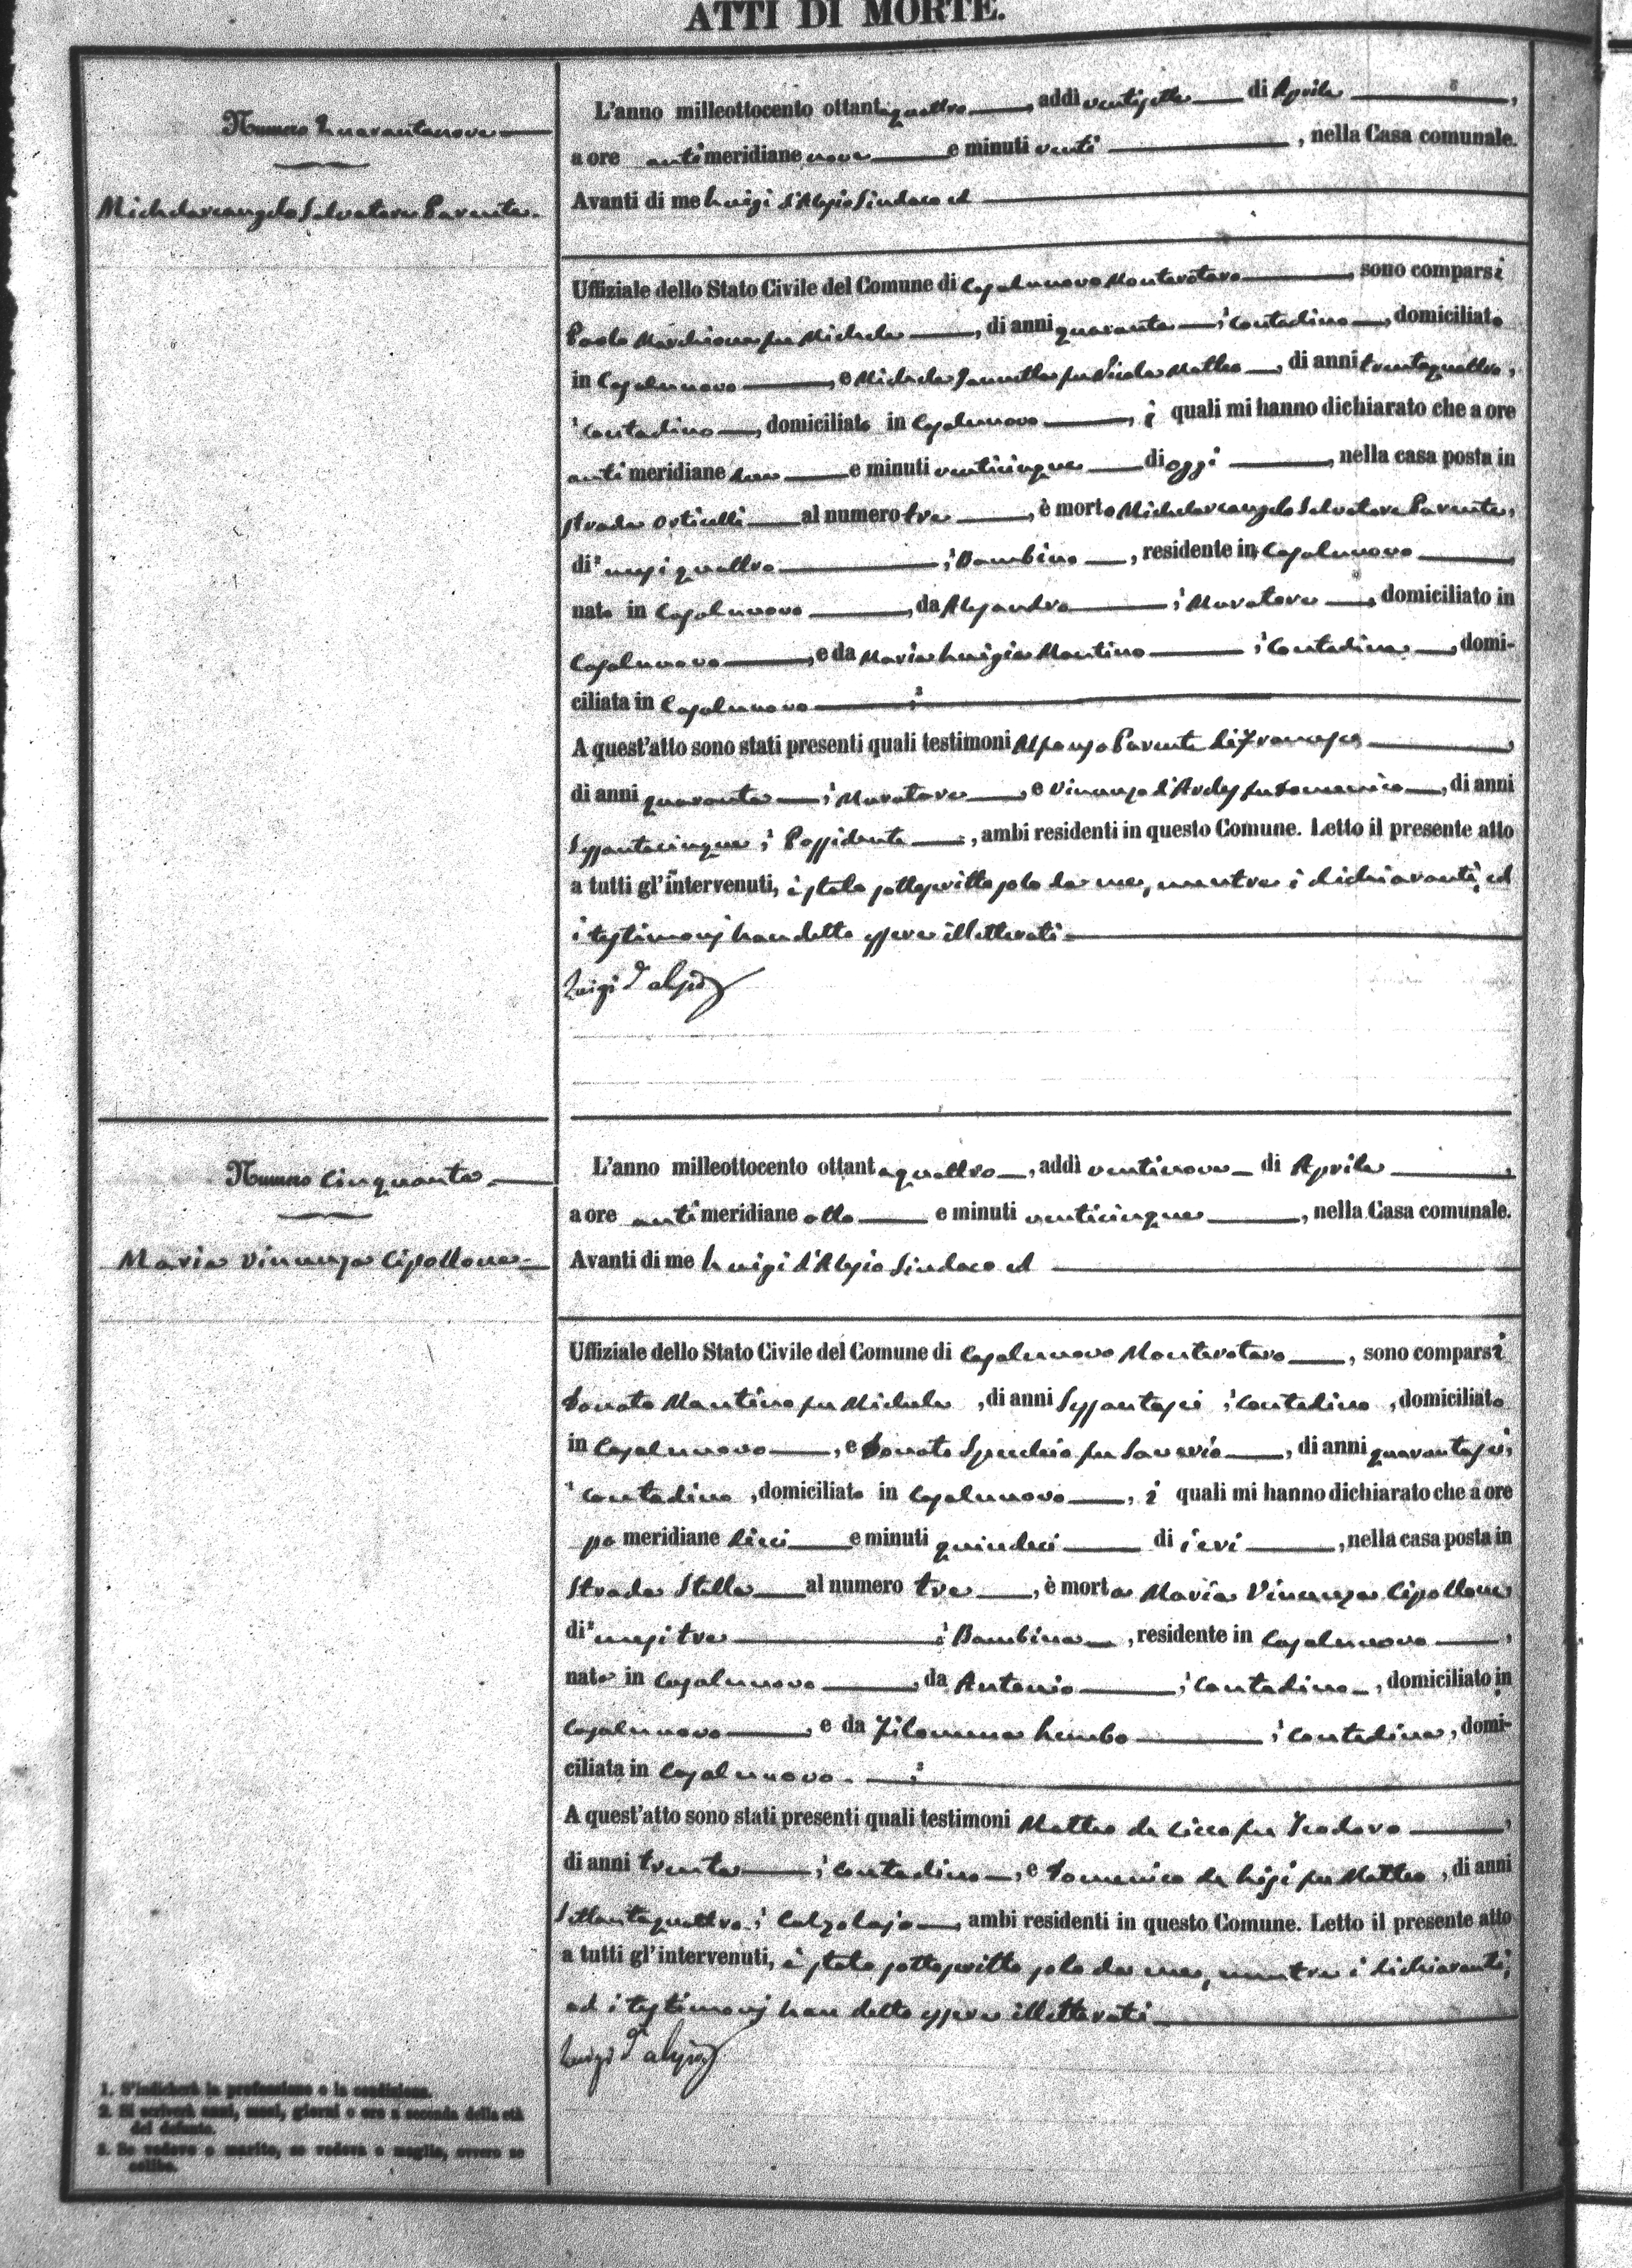 ATTI DI MORTE.
Numero Quarantanove
Michelarcangelo Salvatore Parente.
L'anno milleottocento ottantaquattro, addì ventisette di Aprile,
a ore antimeridiane nove e minuti venti, nella Casa comunale.
Avanti di me Luigi d'Alesio Sindaco ed
Uffiziale dello Stato Civile del Comune di Casalnuovo Monterotaro, sono comparsi
Paolo fu Michele, di anni quaranta, contadino, domiciliato
in Casalnuovo, e Michele fu Nicola Matteo, di anni trentaquattro,
contadino, domiciliato in Casalnuovo, i quali mi hanno dichiarato che a ore
antimeridiane e minuti venticinque di oggi, nella casa posta in
strada Orticelli al numero tre, è morto Michelarcangelo Salvatore Parente,
di mesi quattro, Bambino, residente in Casalnuovo,
nato in Casalnuovo, da Alesandro, Muratore, domiciliato in
Casalnuovo, e da Maria Luigia Mantino, contadina, domi-
ciliata in Casalnuovo
A quest'atto sono stati presenti quali testimoni Alfonso Parente di Francesco,
di anni quaranta, Muratore, e Vincenzo fu Domenico, di anni
Sessantacinque, Possidente, ambi residenti in questo Comune. Letto il presente atto
a tutti gl'intervenuti, è stato sottoscritto solo da me, mentre i dichiaranti, ed
i testimonj han detto essere illetterati.
Luigi d'Alesio
Numero Cinquanta
Maria Vincenza Cipollone
L'anno milleottocento ottantaquattro, addì ventinove di Aprile,
a ore antimeridiane otto e minuti venticinque, nella Casa comunale.
Avanti di me Luigi d'Alesio Sindaco ed
Uffiziale dello Stato Civile del Comune di Casalnuovo Monterotaro, sono comparsi
Donato Mantino fu Michele, di anni Sessantasei, contadino, domiciliato
in Casalnuovo, e Donato Specchio fu Saverio, di anni quarantasei,
contadino, domiciliato in Casalnuovo, i quali mi hanno dichiarato che a ore
pomeridiane dieci e minuti quindici di ieri, nella casa posta in
Strada Stella al numero tre, è morta Maria Vincenza Cipollone
di mesi tre, Bambina, residente in Casalnuovo,
nata in Casalnuovo, da Antonio, contadino, domiciliato in
Casalnuovo, e da Filomena Lembo, contadina, domi-
ciliata in Casalnuovo.
A quest'atto sono stati presenti quali testimoni Matteo de Cicco fu Teodoro,
di anni trenta, contadino, e Domenico de fu Matteo, di anni
Settantaquattro, Calzolajo, ambi residenti in questo Comune. Letto il presente atto
a tutti gl'intervenuti, è stato sottoscritto solo da me, mentre i dichiaranti,
ed i testimonj han detto essere illetterati
Luigi d'Alesio
1. S'indicherà la professione o la condizione.
2. Si scriverà anni, mesi, giorni o ore a seconda della età
del defunto.
3. Se vedovo o marito, se vedova o moglie, ovvero se
celibe.